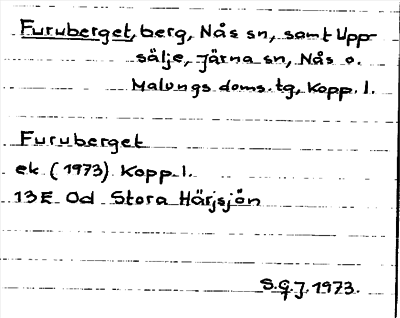 Furuberget, berg, Nås sn, samt Upp-
sälje, Järna sn, Nås o.
Malungs doms. tg, Kopp. l.
Furuberget
ek (1973) Kopp. l.
13E Od Stora Härjsjön
S.G.J. 1973.